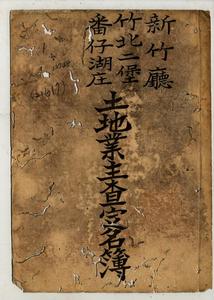 新竹廳
竹北二堡
番仔湖庄
土地業主查定名簿